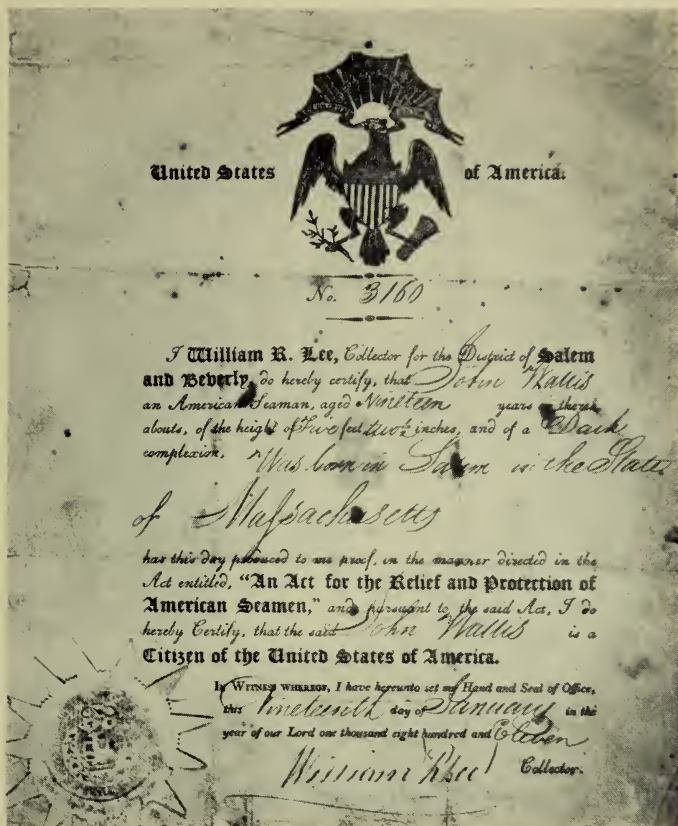 United States of America.
No. 3160
I William R. Lee, Collector for the District of Salem
and Beverly, do hereby certify, that John Wallis
an American Seaman, aged Nineteen years or there
abouts, of the height of Five feet two ½ inches, and of a Dark
complexion, Was born in Salem in the State
of Massachusetts
has this day produced to me proof, in the manner directed in the
Act entitled, "An Act for the Relief and Protection of
American Seamen," and pursuant to the said Act, I do
hereby Certify, that the said John Wallis is a
Citizen of the United States of America.
In Witness whereof, I have hereunto set my Hand and Seal of Office,
this Nineteenth day of January in the
year of our Lord one thousand eight hundred and Eleven
William R Lee Collector.